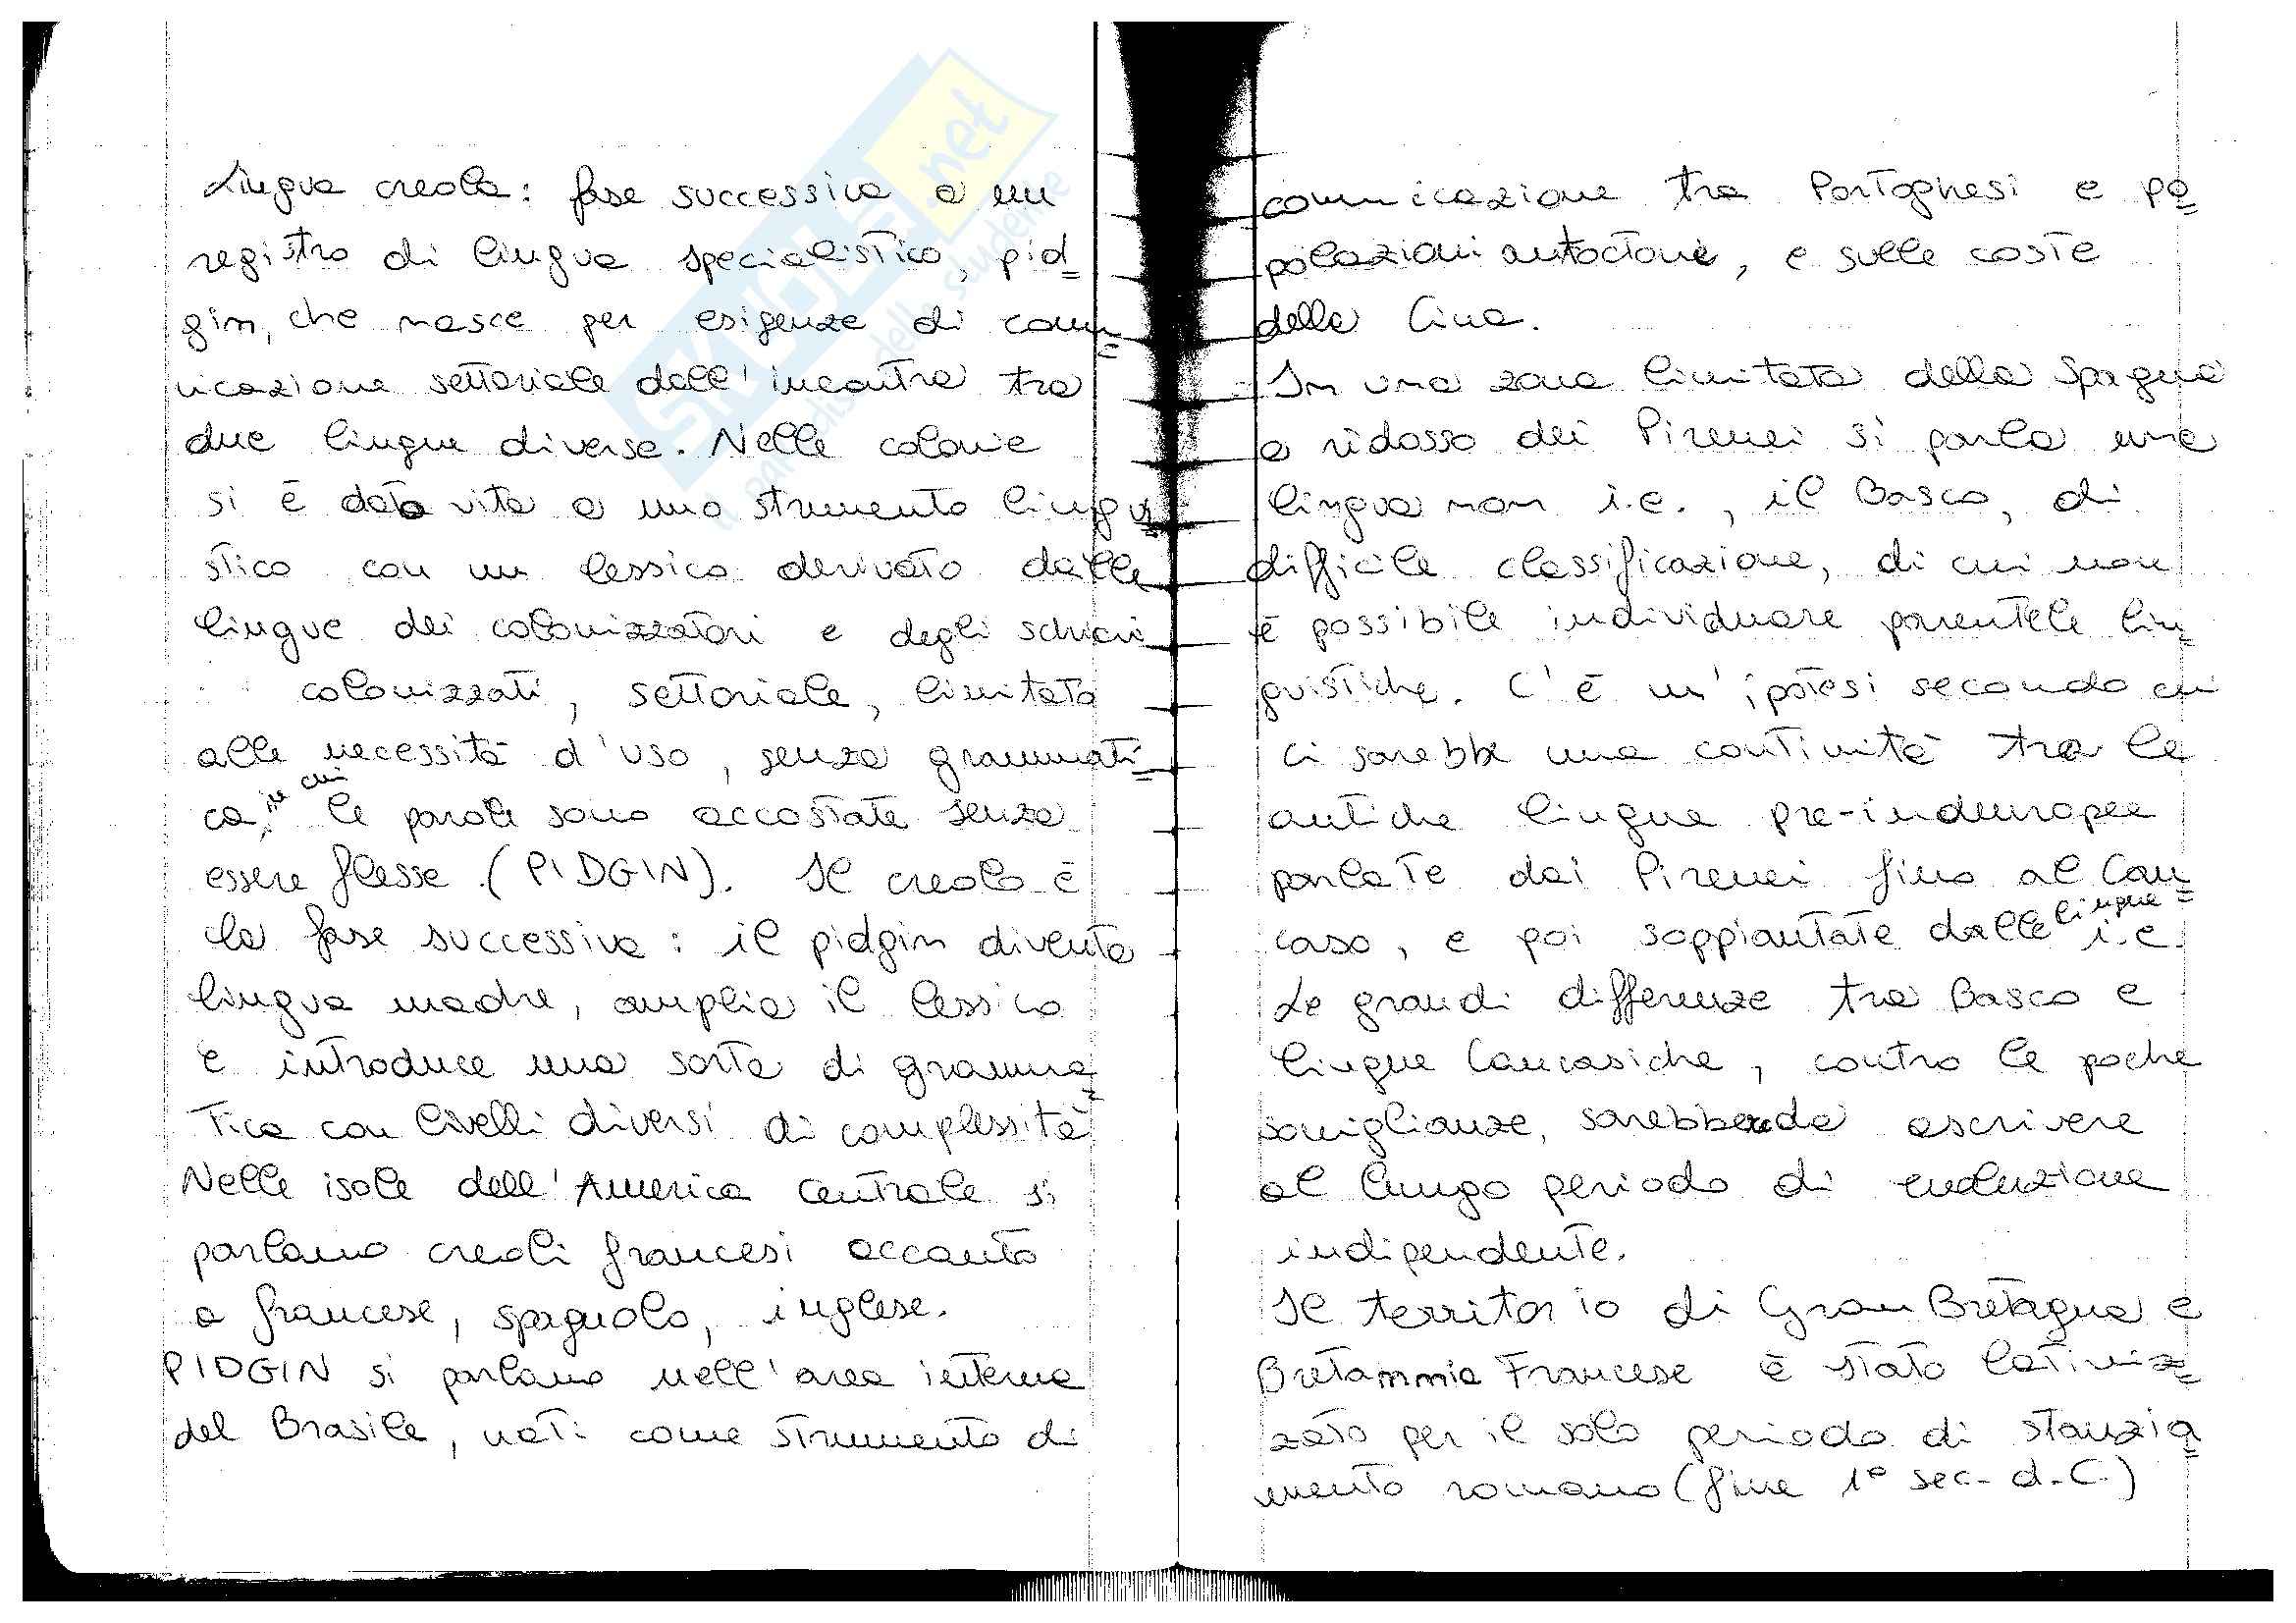 Lingua creola: fase successiva a un
registro di lingua specialistico, pid=
gin, che nasce per esigenze di comu=
nicazione settoriale dall'incontro tra
due lingue diverse. Nelle colonie
si è dato vita a uno strumento lingui=
stico con un lessico derivato dalle
lingue dei colonizzatori e degli schiavi
colonizzati, settoriale, limitato
alle necessità d'uso, senza grammati=
ca, in cui le parole sono accostate senza
essere flesse (PIDGIN). Il creolo è
la fase successiva: il pidgin diventa
lingua madre, amplia il lessico
e introduce una sorta di gramma=
tica con livelli diversi di complessità
Nelle isole dell'America centrale si
parlano creoli francesi accanto
a francese, spagnolo, inglese.
PIDGIN si parlano nell'area interna
del Brasile, nati come strumento di
comunicazione tra Portoghesi e po=
polazioni autoctone, e sulle coste
della Cina.
In una zona limitata della Spagna
a ridosso dei Pirenei si parla una
lingua non i.e., il Basco, di
difficile classificazione, di cui non
è possibile individuare parentele lin=
guistiche. C'è un'ipotesi secondo cui
ci sarebbe una continuità tra le
antiche lingue pre-indeuropee
parlate dai Pirenei fino al Cau=
caso, e poi soppiantate dalle lingue i.e.
Le grandi differenze tra Basco e
lingue Caucasiche, contro le poche
somiglianze, sarebbero da ascrivere
al lungo periodo di evoluzione
indipendente.
Il territorio di Gran Bretagna e
Bretannia Francese è stato latiniz=
zato per il solo periodo di stanzia=
mento romano (fine 1° sec. d.C.)
SKUOLA.net
paradiso dello studente